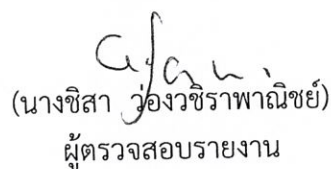 (นางชิสา ว่องวชิราพาณิชย์)
ผู้ตรวจสอบรายงาน